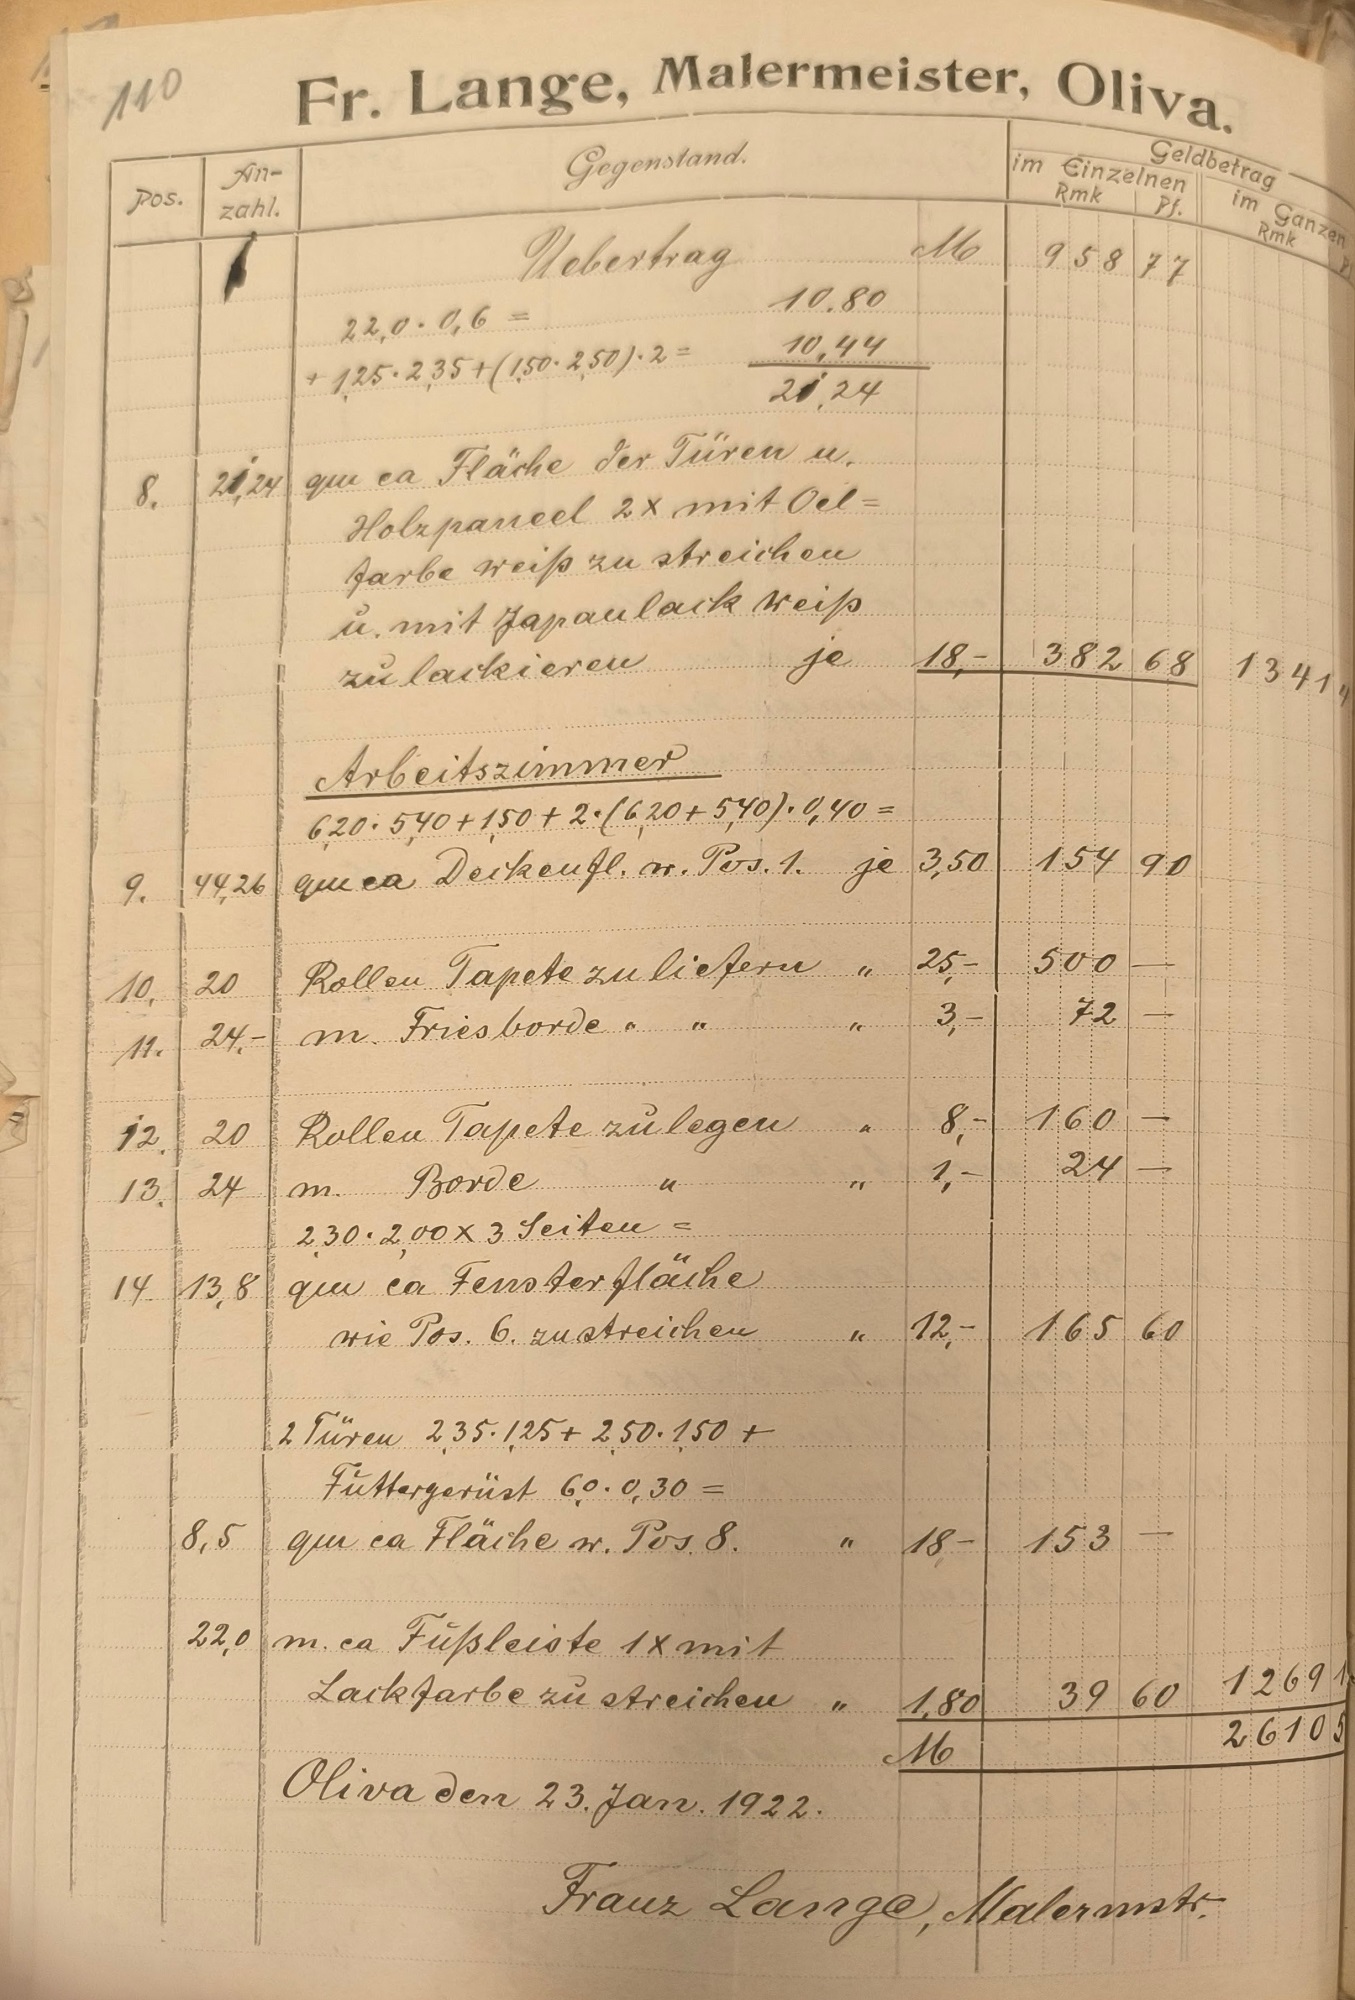 110
Fr. Lange, Malermeister, Oliva.
Pos. An- Gegenstand. Geldbetrag
zahl. im Einzelnen im Ganzen
Rmk Pf. Rmk
Uebertrag M 958 77
22,0 · 0,6 = 10,80
+ 1,25 · 2,35 + (1,50 · 2,50) · 2 = 10,44
21,24
8. 21,24 qm ca Fläche der Türen u.
Holzpaneel 2x mit Oel=
farbe weiß zu streichen
u. mit Japanlack weiß
zu lackieren je 18,- 382 68 1341
Arbeitszimmer
6,20 · 5,40 + 1,50 + 2 · (6,20 + 5,40) · 0,40 =
9. 44,26 qm ca Deckenfl. w. Pos. 1. je 3,50 154 90
10. 20 Rollen Tapete zu liefern " 25,- 500 —
11. 24,- m. Friesborde " " " 3,- 72 —
12. 20 Rollen Tapete zu legen " 8,- 160 —
13. 24 m. Borde " " 1,- 24 —
2,30 · 2,00 x 3 Seiten =
14 13,8 qm ca Fensterfläche
wie Pos. 6. zu streichen " 12,- 165 60
2 Türen 2,35 · 1,25 + 2,50 · 1,50 +
Futtergerüst 6,0 · 0,30 =
8,5 qm ca Fläche w. Pos. 8. " 18,- 153 —
22,0 m. ca Fußleiste 1x mit
Lackfarbe zu streichen " 1,80 39 60 1269 1
M 2610 5
Oliva den 23. Jan. 1922.
Franz Lange, Malermstr.